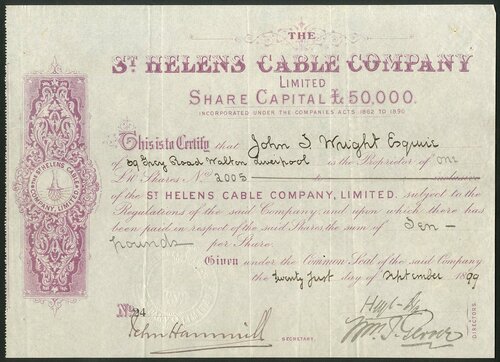 THE
ST HELENS CABLE COMPANY
LIMITED
SHARE CAPITAL £50,000.
INCORPORATED UNDER THE COMPANIES ACTS 1862 TO 1890
This is to Certify that John S Wright Esquire
of 29 Grey Road Walton Liverpool is the Proprietor of one
£10 Shares No 2005 to inclusive
of the ST HELENS CABLE COMPANY, LIMITED. subject to the
Regulations of the said Company and upon which there has
been paid in respect of the said Shares the sum of Ten
pounds per Share.
Given under the Common Seal of the said Company
the twenty first day of September 1899
No 94
John Hammill
SECRETARY
DIRECTORS
ST HELENS CABLE COMPANY LIMITED